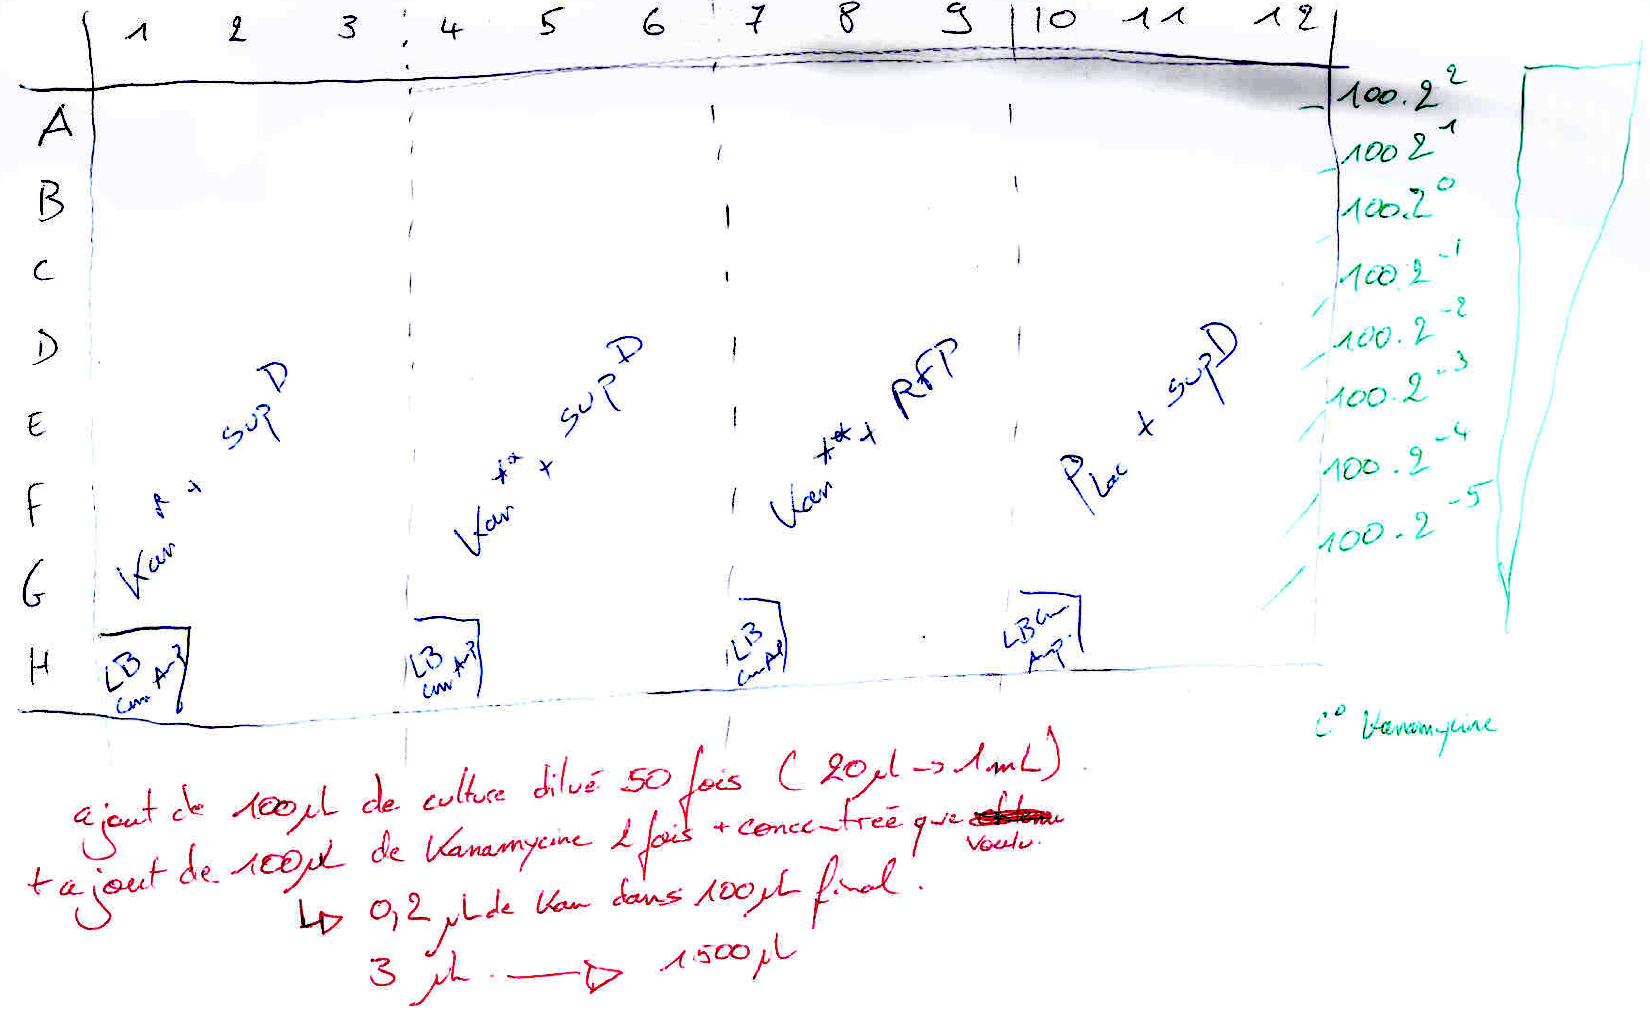 1 2 3 4 5 6 7 8 9 10 11 12
A
B
C
D
E
F
G
H
100.2^2
100 2^1
100.2^0
100.2^-1
100.2^-2
100.2^-3
100.2^-4
100.2^-5
Kan* + supD
Kan** + supD
Kan** + RFP
PLac + supD
LB
Cm Amp
LB
Cm Amp
LB
Cm Ap
LB Cm
Amp
C° Kanamycine
ajout de 100µL de culture dilué 50 fois (20µl -> 1mL).
+ ajout de 100µL de Kanamycine 2 fois + concentrée que
voulu.
↳ 0,2 µL de Kan dans 100µL final.
3 µL → 1500µL